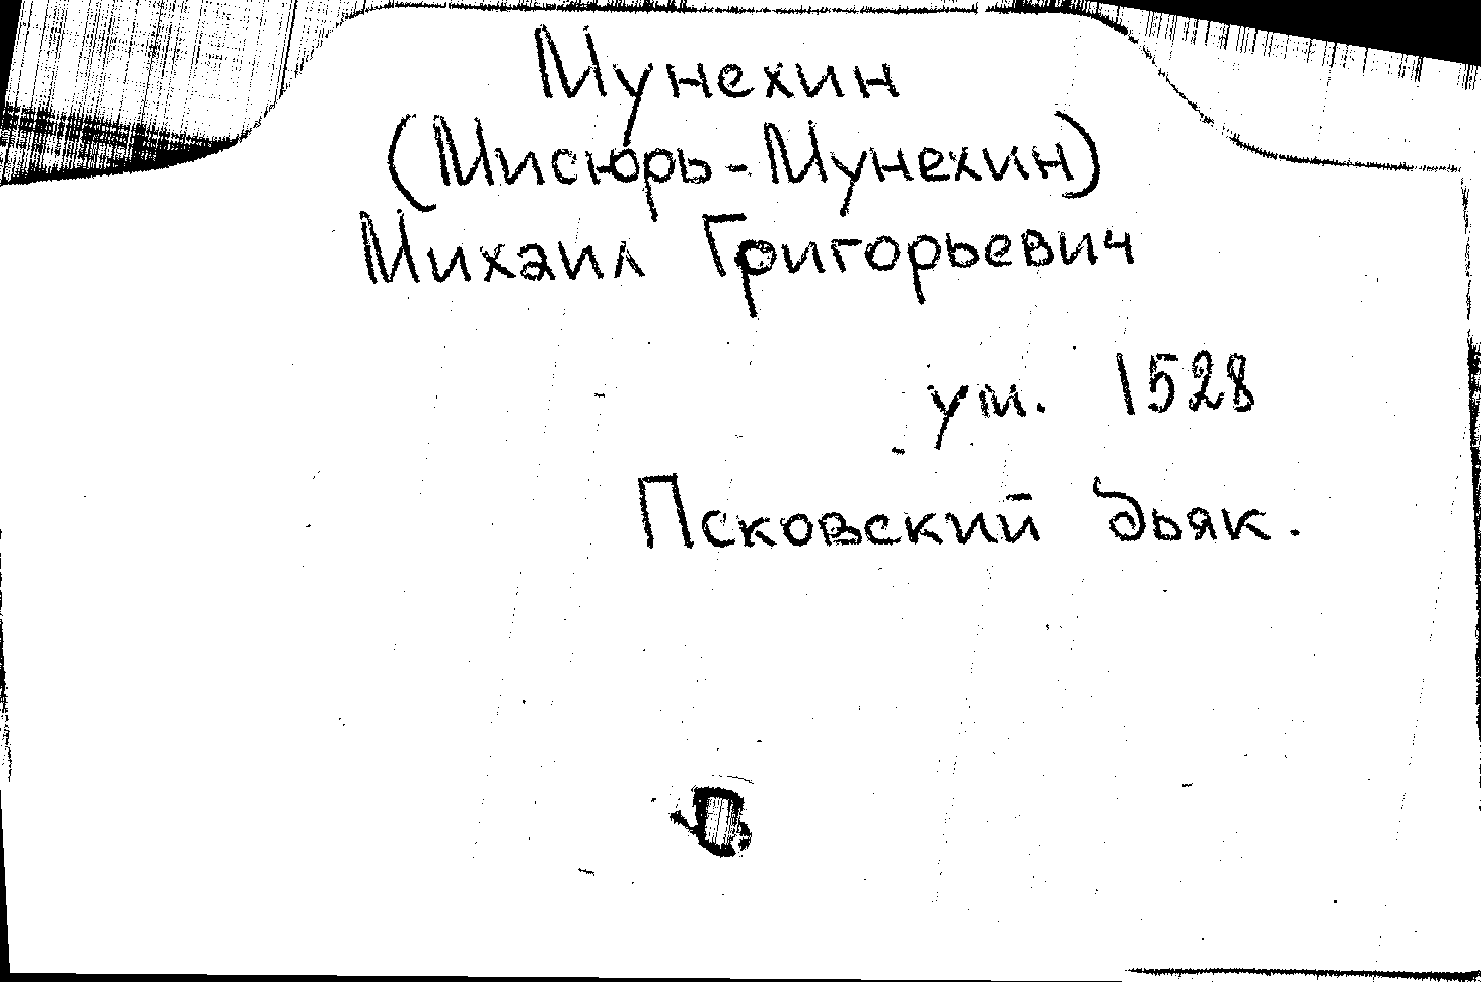 Мунехин
(Мисюрь-Мунехин)
Михаил Григорьевич
ум. 1528
Псковский дьяк.